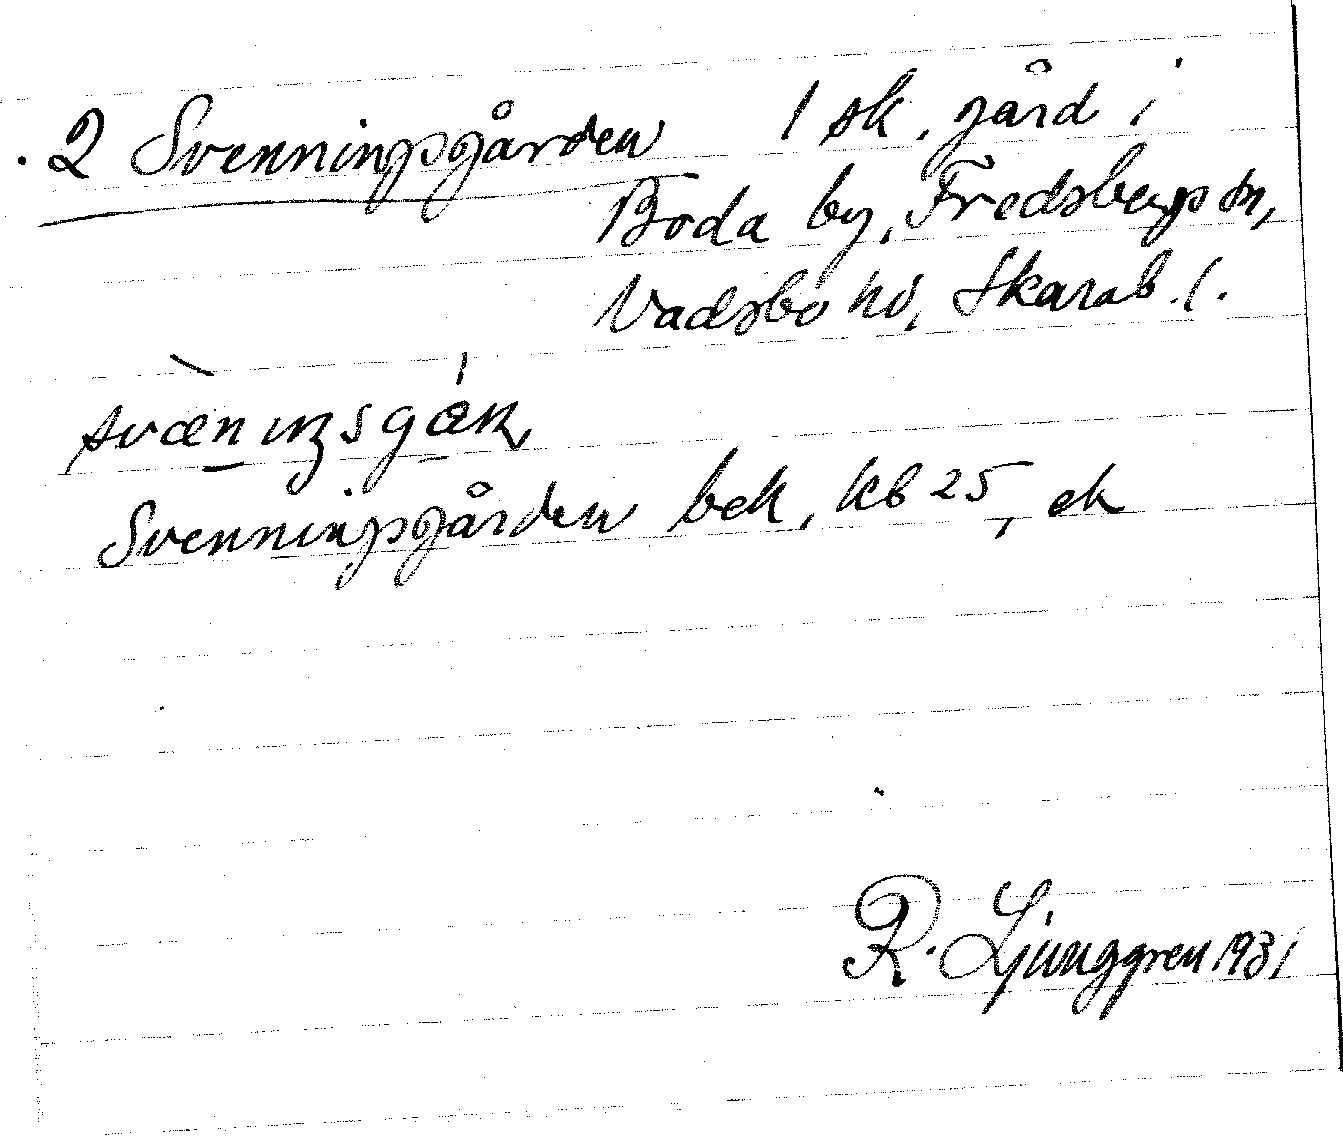 2 Svenningsgården 1 sk. gård i
Boda by, Fredsbergs sn,
Vadsbo hd, Skarab. l.
svænıŋsgæɳ
Svenningsgården bek, kb 25, ek
R. Ljunggren 1931